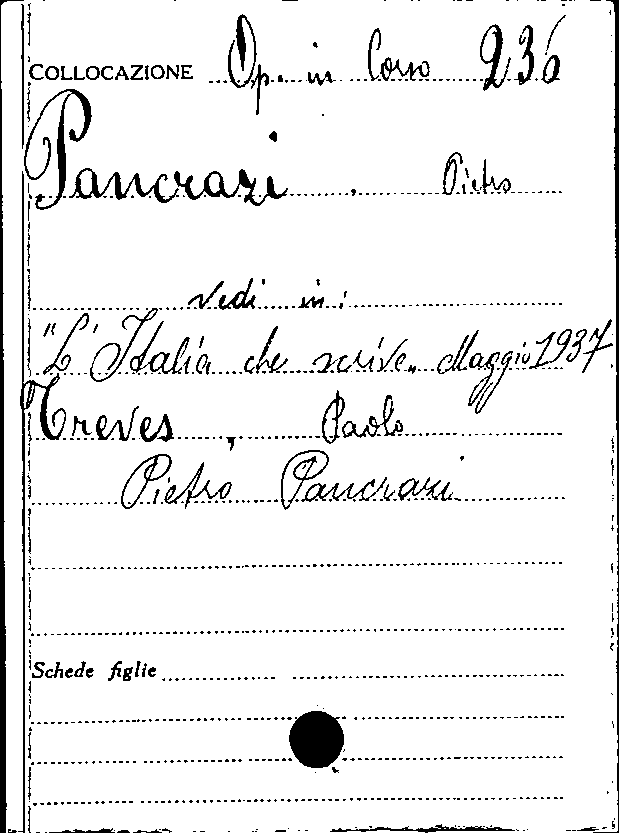 COLLOCAZIONE Op. in Corso 236
Pancrazi, Pietro
vedi in:
"L'Italia che scrive" Maggio 1937
Treves, Paolo
Pietro Pancrazi
Schede figlie